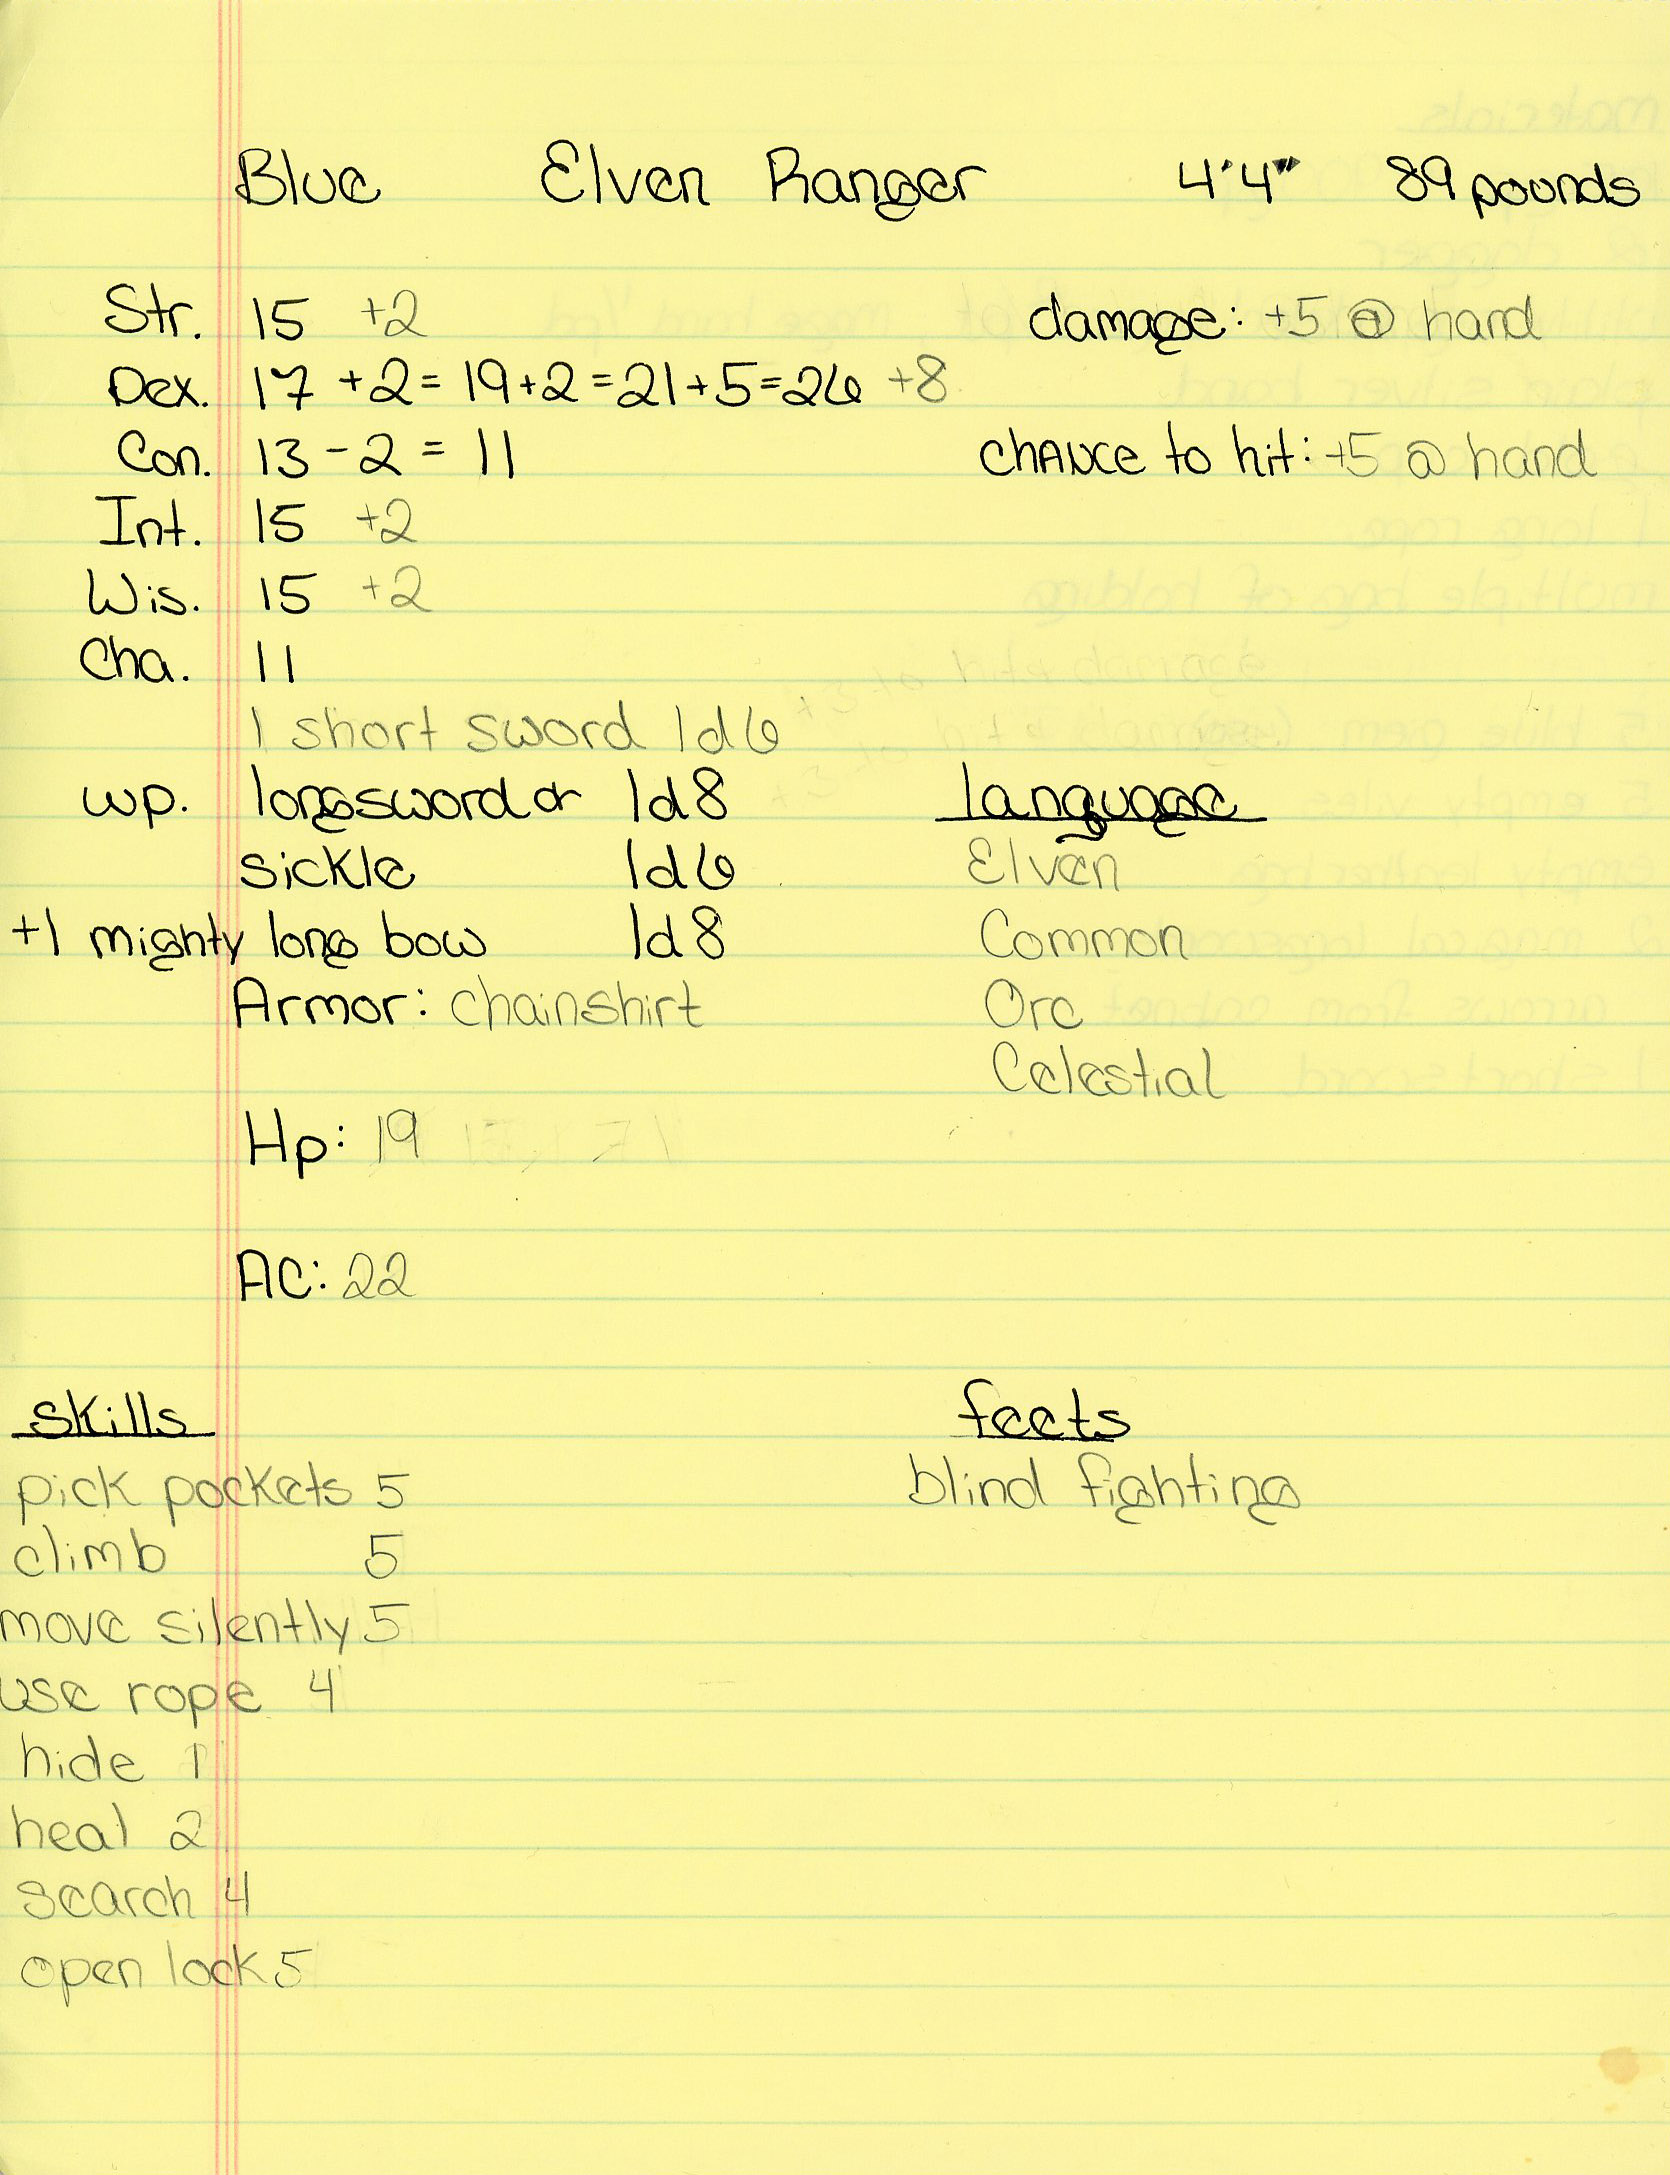 Blue Elven Ranger 4'4" 89 pounds
Str. 15 +2 damage: +5 @ hand
Dex. 17 +2 = 19 +2 = 21 + 5 = 26 +8
Con. 13 - 2 = 11 chance to hit: +5 @ hand
Int. 15 +2
Wis. 15 +2
Cha. 11
1 short sword 1d6
wp. longsword or 1d8 language
sickle 1d6 Elven
+1 mighty long bow 1d8 Common
Armor: chainshirt Orc
Celestial
Hp: 19
AC: 22
skills feets
pick pockets 5 blind fighting
climb 5
move silently 5
use rope 4
hide 1
heal 2
search 4
open lock 5